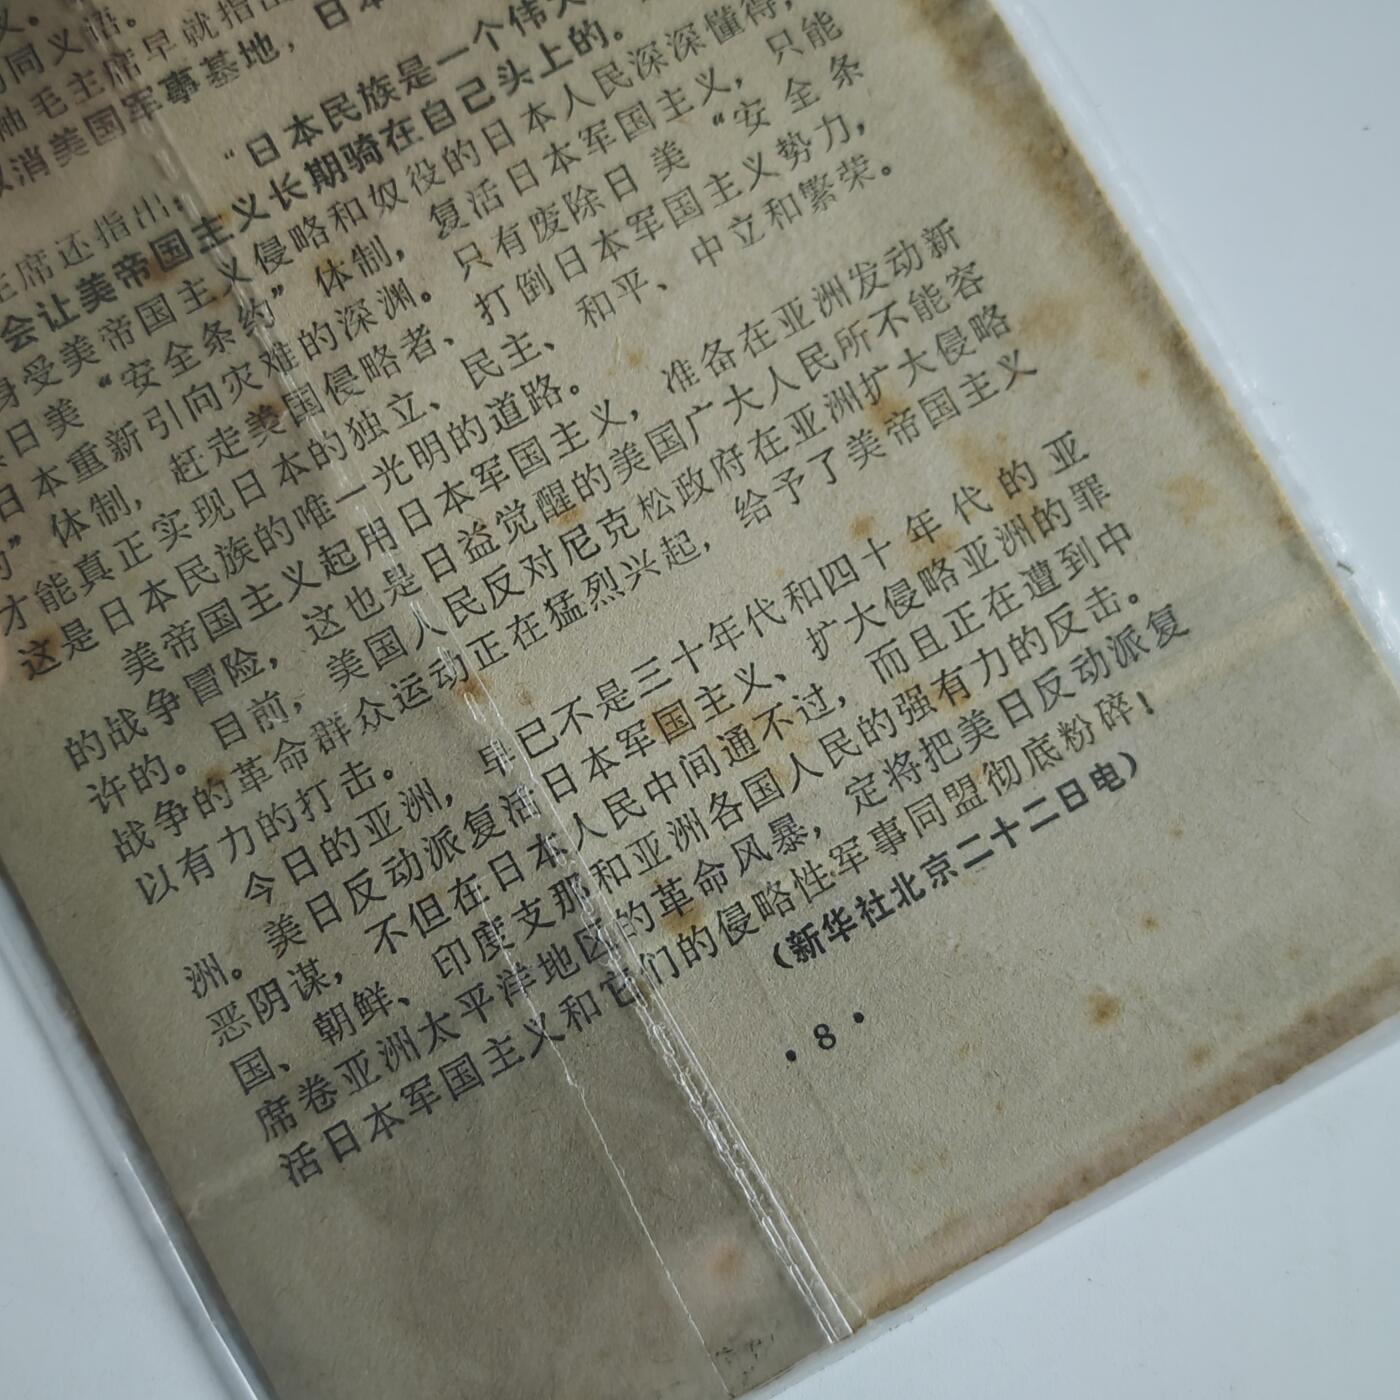 义．
的同义语。
袖毛主席早就指出
取消美国军事基地，日本
主席还指出：“日本民族是一个伟大
会让美帝国主义长期骑在自己头上的。
身受美帝国主义侵略和奴役的日本人民深深懂得，
日美“安全条约”体制，复活日本军国主义，只能
日本重新引向灾难的深渊。只有废除日美“安全条
约”体制，赶走美国侵略者、打倒日本军国主义势力，
才能真正实现日本的独立、民主、和平、中立和繁荣。
这是日本民族的唯一光明的道路。
美帝国主义起用日本军国主义，准备在亚洲发动新
的战争冒险，这也是日益觉醒的美国广大人民所不能容
许的。目前，美国人民反对尼克松政府在亚洲扩大侵略
战争的革命群众运动正在猛烈兴起，给予了美帝国主义
以有力的打击。
今日的亚洲，早已不是三十年代和四十年代的亚
洲。美日反动派复活日本军国主义、扩大侵略亚洲的罪
恶阴谋，不但在日本人民中间通不过，而且正在遭到中
国、朝鲜、印度支那和亚洲各国人民的强有力的反击。
席卷亚洲太平洋地区的革命风暴，定将把美日反动派复
活日本军国主义和它们的侵略性军事同盟彻底粉碎！
（新华社北京二十二日电）
·8·